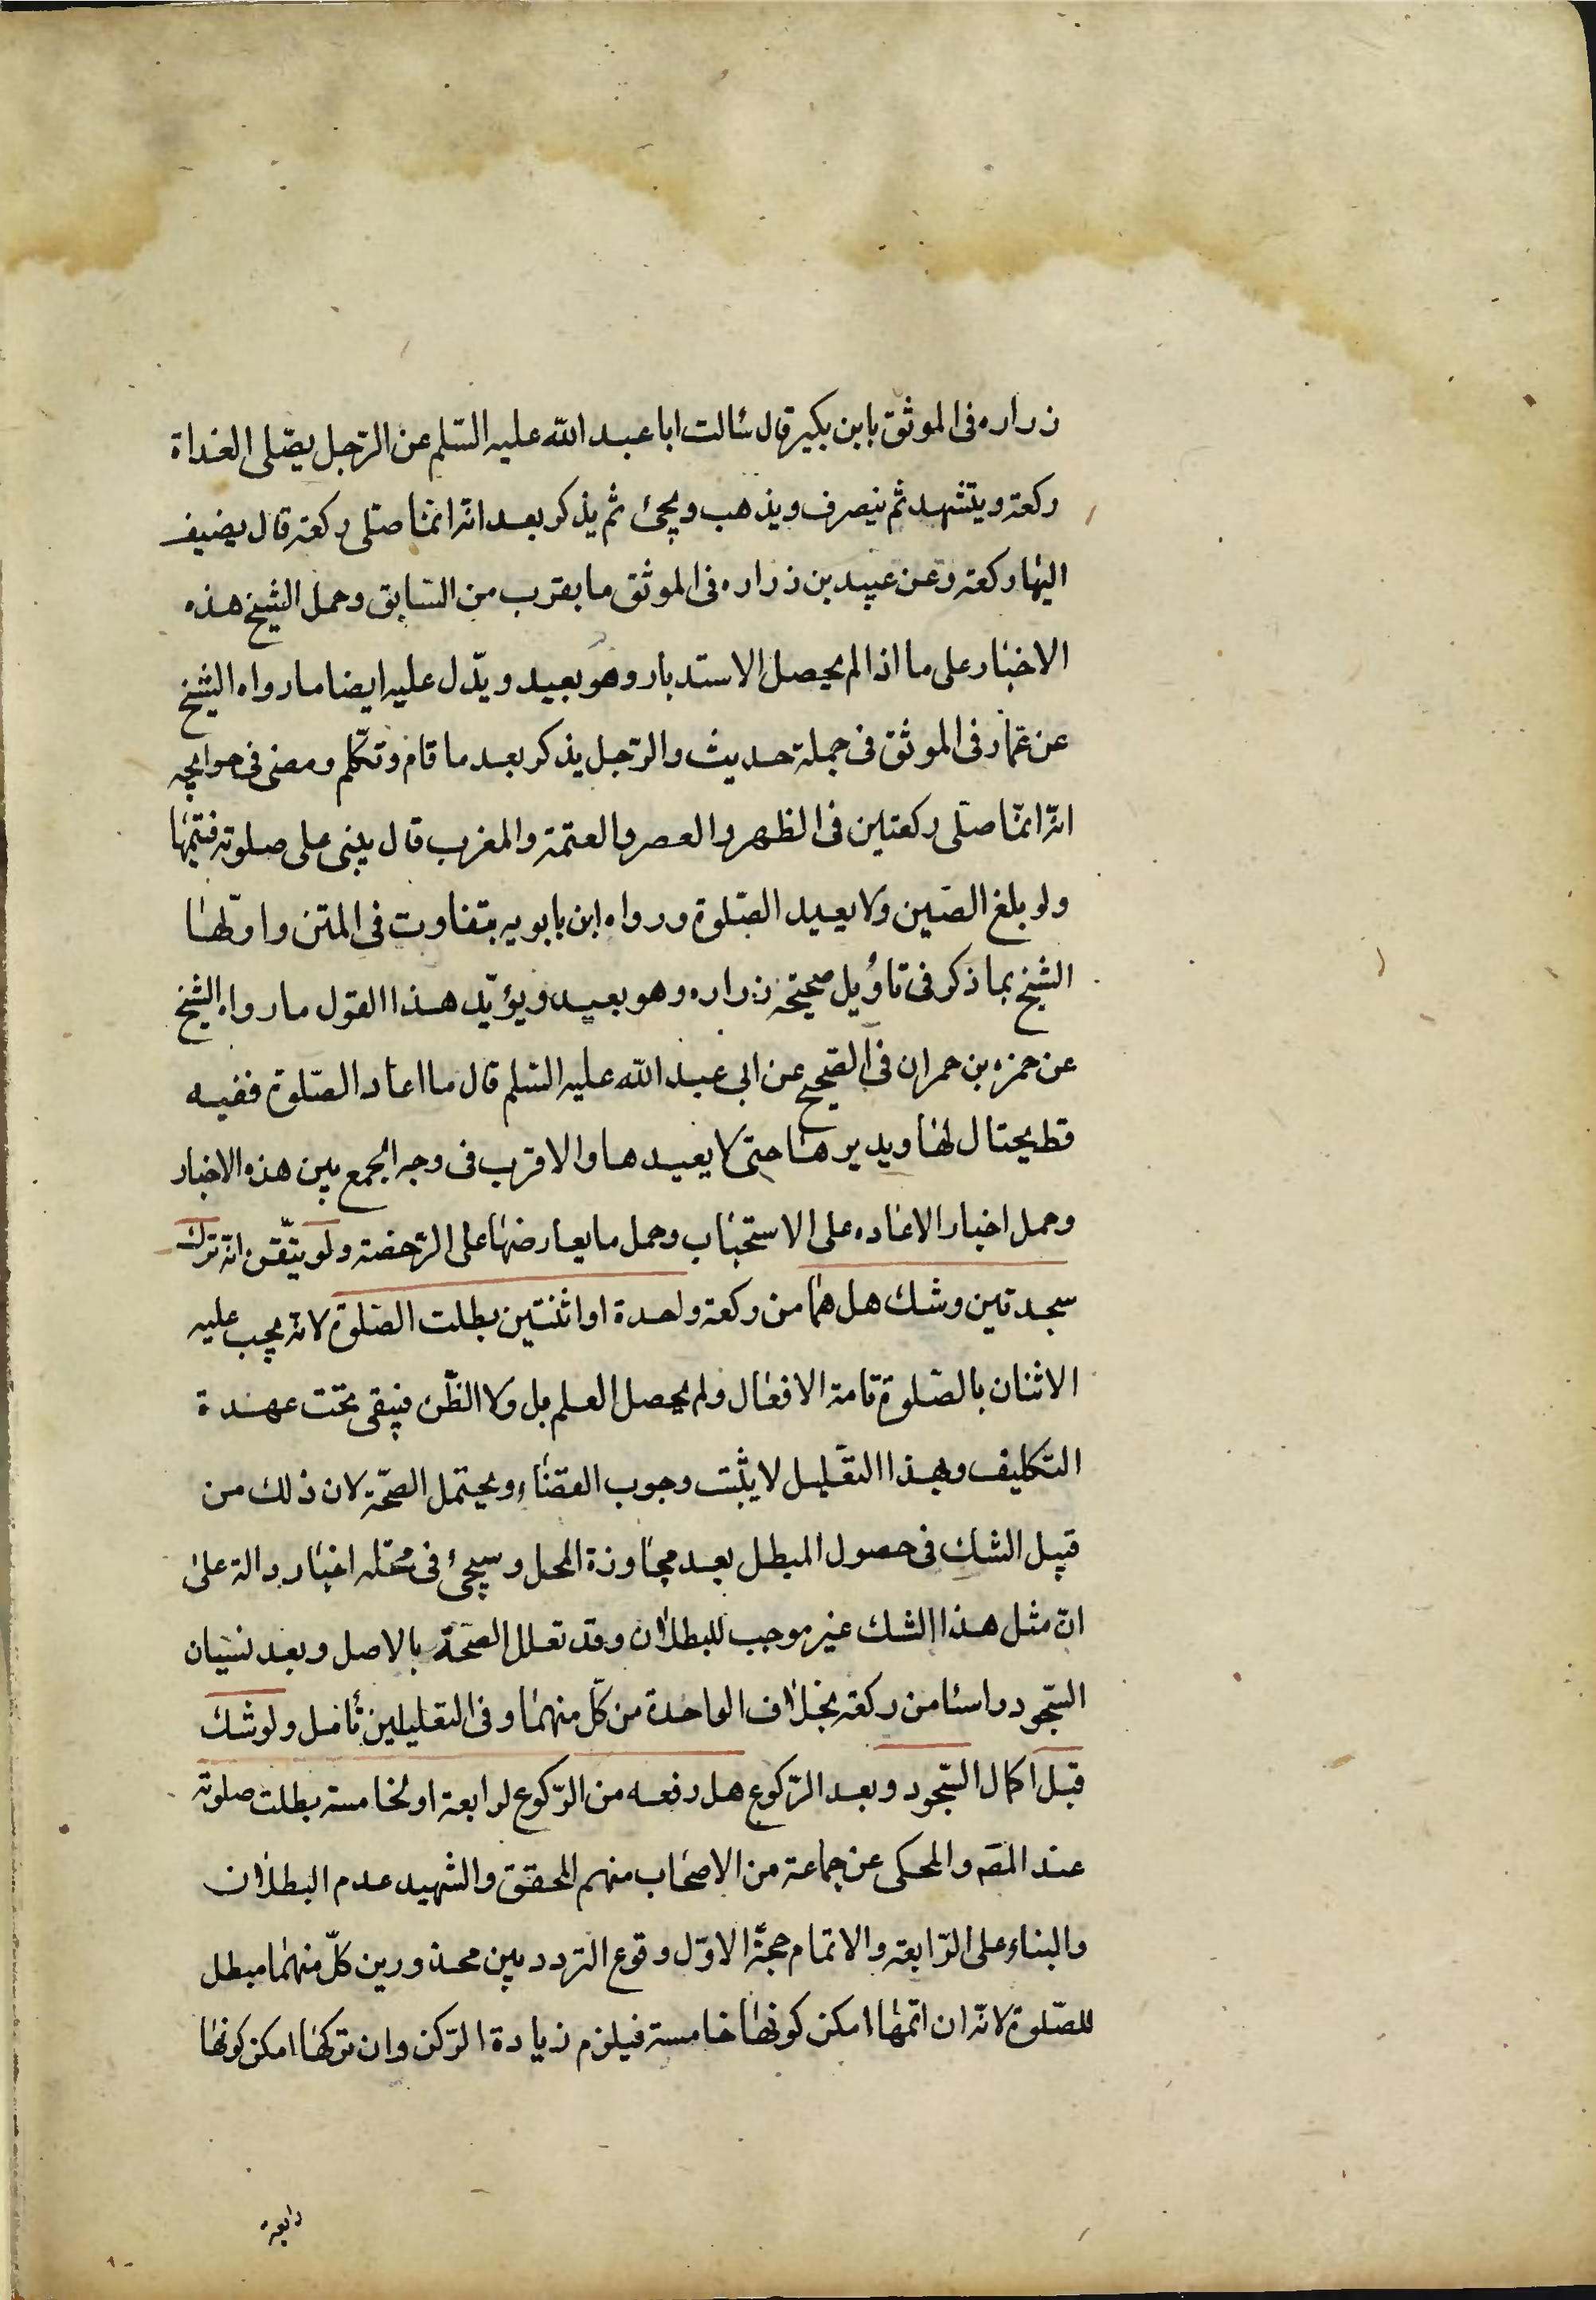 زراره فى الموثق بابن بكير قال سئالت ابا عبد الله عليه السّلم عن الرّجل يصّلى الغداة
ركعة ويتشهد ثم ينصرف ويذهب ويجئ ثم يذكر بعد انّه انمّا صلى ركعة قال يضيف
اليها ركعة وعن عبيد بن زراره فى الموثق ما يقرب من السّابق وحمل الشيخ هذه
الاخبار على ما اذا لم يحصل الاستدبار وهو بعيد ويدّل عليه ايضا ما رواه الشيخ
عن عمّار فى الموثق فى جملة حديث والرّجل يذكر بعد ما قام وتكلّم ومضى فى حوايجه
انّه انمّا صلّى ركعتين فى الظهر والعصر والعتمة والمغرب قال يبنى على صلوته فيتمّها
ولو بلغ الصّين ولا يعيد الصّلوة ورواه ابن بابويه بتفاوت فى المتن واوّلها
الشيخ بما ذكر فى تأويل صحيحة زراره وهو بعيد ويؤيّد هذا القول ما رواه الشيخ
عن حمزه بن حمران فى الصّحيح عن ابى عبد الله عليه السّلم قال ما اعاد الصّلوة فقيه
قط يحتال لها ويديرها حتى لا يعيدها والاقرب فى وجه الجمع بين هذه الاخبار
وحمل اخبار الاعاده على الاستحباب وحمل ما يعارضها على الرّخصة ولو تيّقن انّه ترك
سجدتين وشك هل هما من ركعة واحدة او اثنتين بطلت الصّلوة لانّه يجب عليه
الاتنان بالصّلوة تامة الافعال ولم يحصل العلم بل ولا الظّن فيبقى تحت عهدة
التكليف وبهذا التعّليل لا يثبت وجوب القضاء ويحتمل الصحّة لان ذلك من
قبيل الشك فى حصول المبطل بعد مجاوزة المحل وسيجئ فى محّله اخبار دالة على
انّ مثل هذا الشك غير موجب للبطلان وقد تعلل الصّحة بالاصل وبعد نسيان
السّجود راسا من ركعة بخلاف الواحدة من كلّ منهما وفى التعليلين تأمّل ولو شك
قبل اكمال السّجود وبعد الرّكوع هل رفعه من الرّكوع لرابعة او لخامسة بطلت صلوته
عند المصّ والمحكى عن جماعة من الاصحاب منهم المحقق والشهيد عدم البطلان
والبناء على الرّابعة والاتمام حجّة الاوّل وقوع التردد بين محذورين كلّ منهما مبطل
للصّلوة لانّه ان اتمّها امكن كونها خامسة فيلزم زيادة الرّكن وان تركها امكن كونها
رابعة